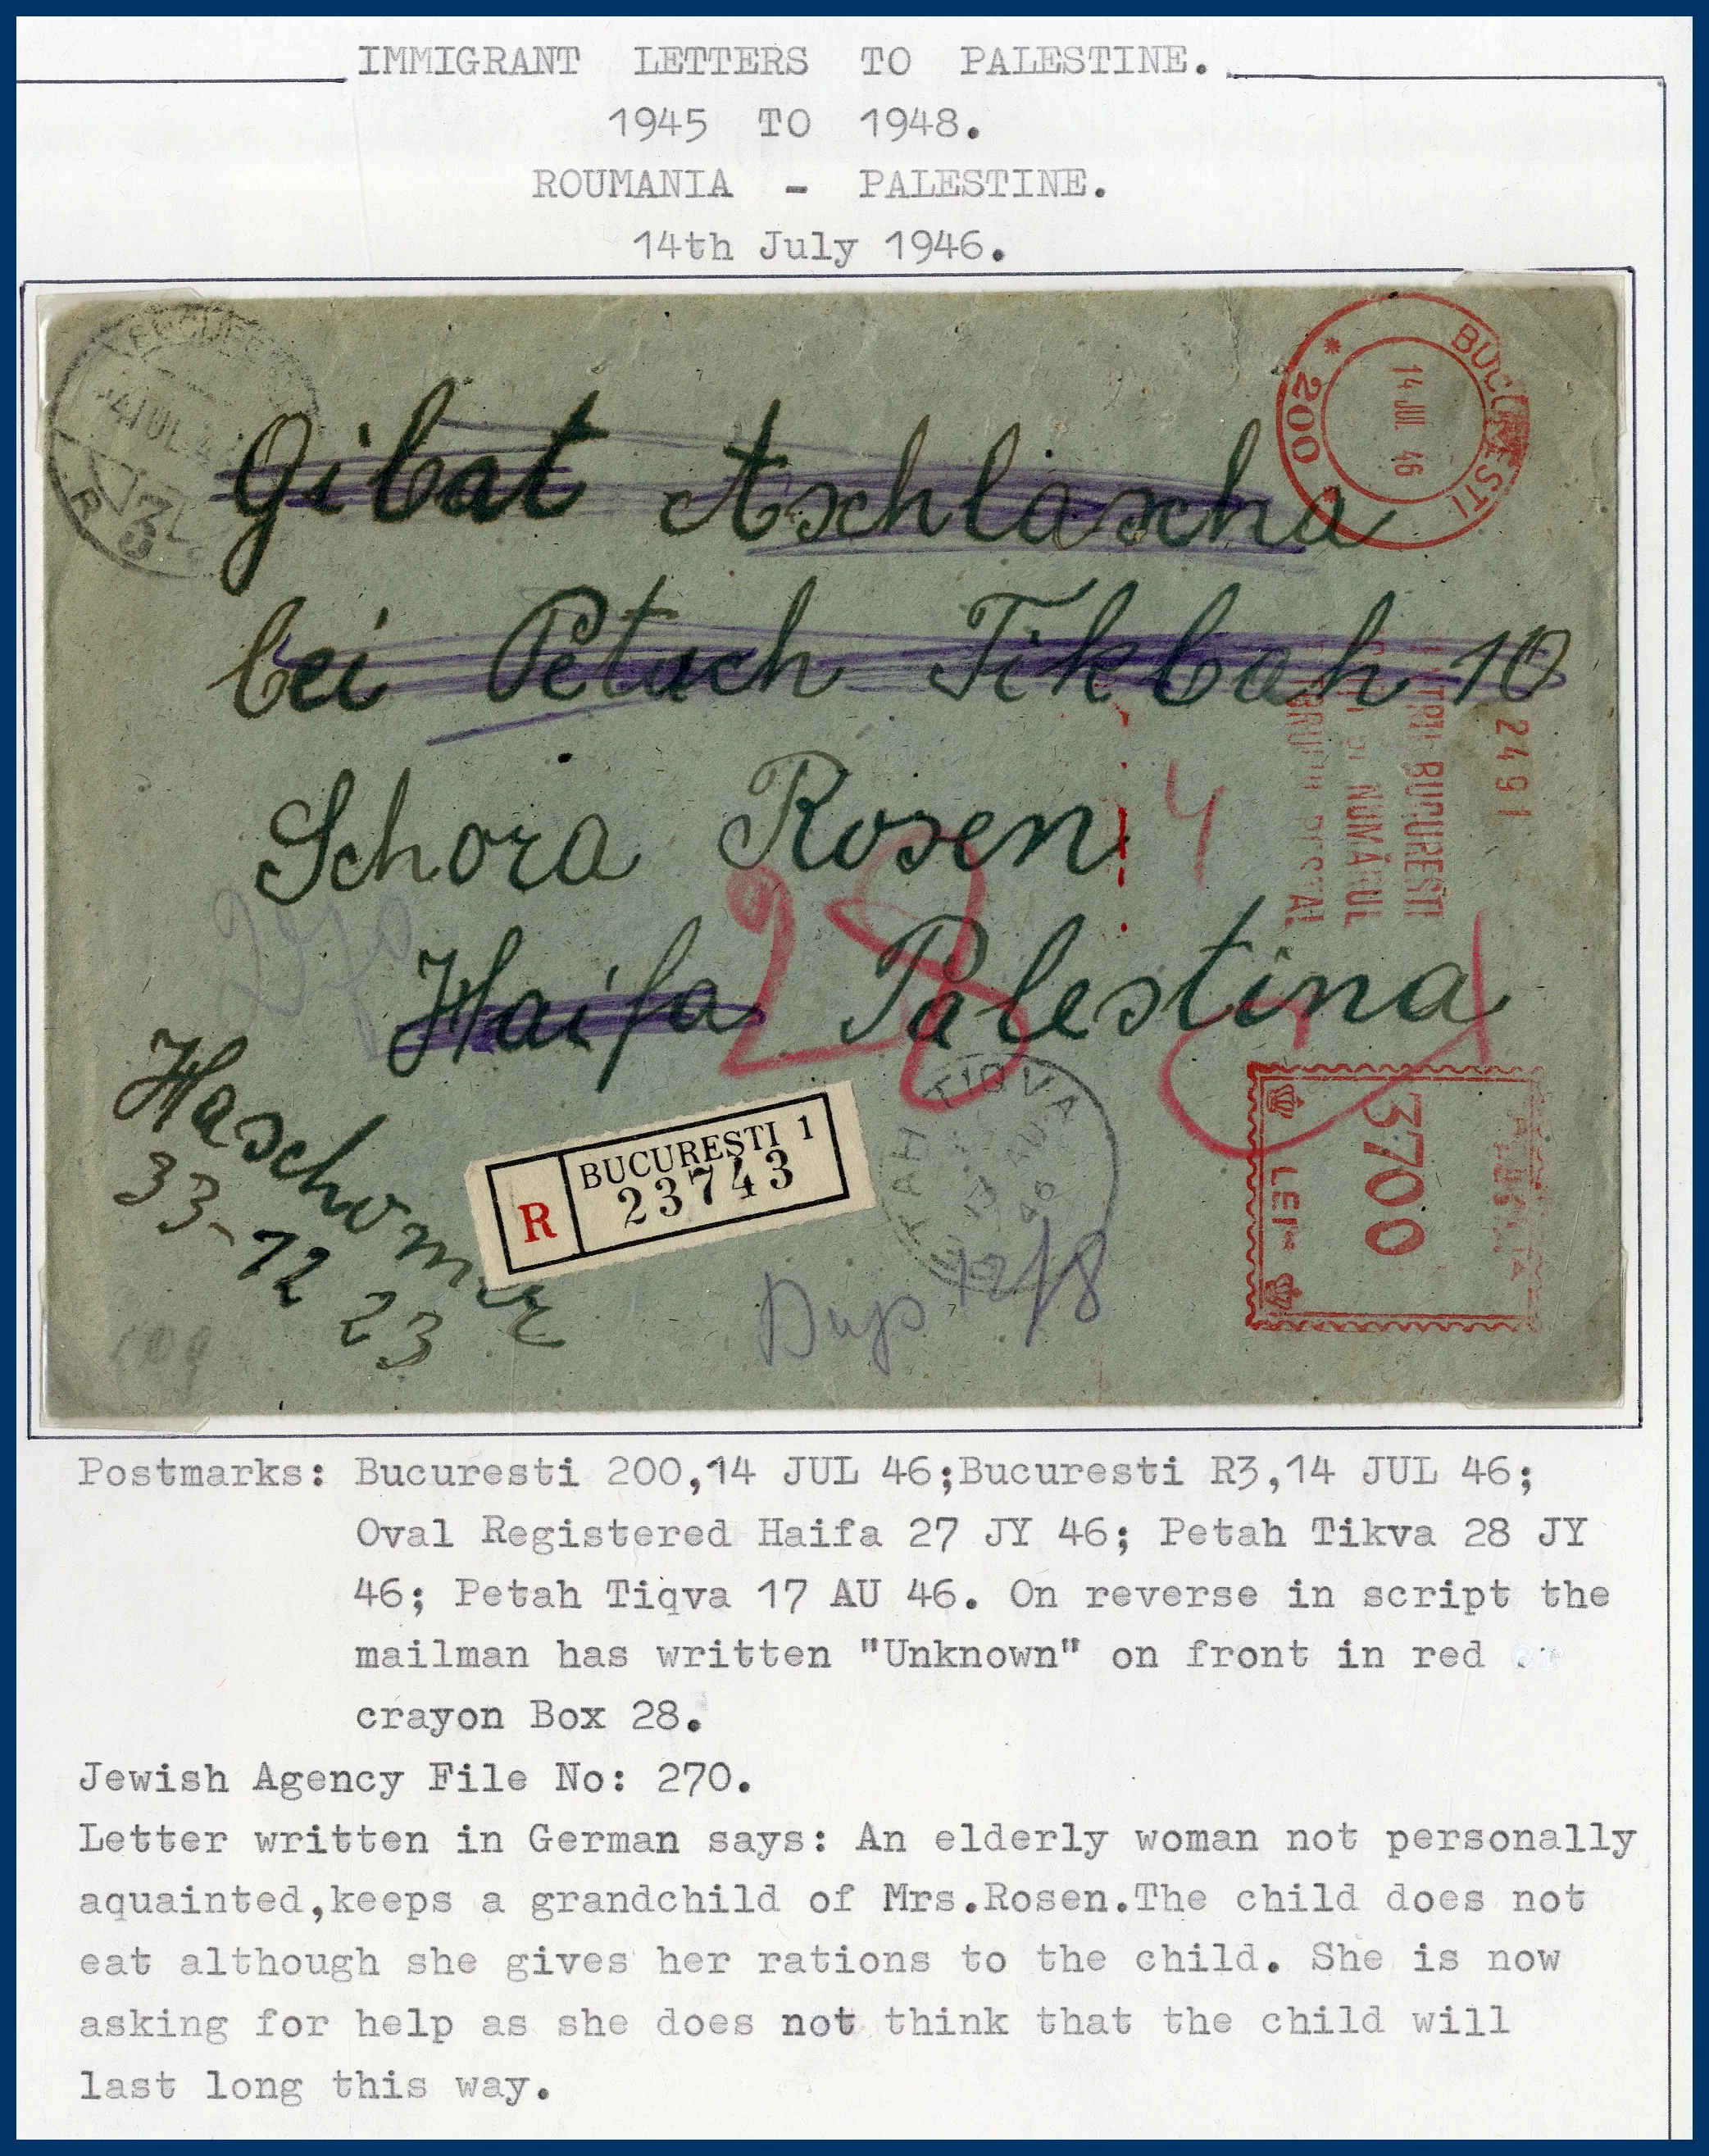 IMMIGRANT LETTERS TO PALESTINE.
1945 TO 1948.
ROUMANIA - PALESTINE.
14th July 1946.
BUCUREȘTI
* 200 *
14 JUL 46
R 3
Gibat Aschlascha
bei Petach Tikbah 10
Schora Rosen
Haifa Palestina
270
4
28
Haschomer
33-12 23
R BUCUREȘTI 1
23743
TAH TIQVA
12/8
2491
BUCURESTI
NUMĂRUL
3700
LEI
Postmarks: Bucuresti 200,14 JUL 46;Bucuresti R3,14 JUL 46;
Oval Registered Haifa 27 JY 46; Petah Tikva 28 JY
46; Petah Tiqva 17 AU 46. On reverse in script the
mailman has written "Unknown" on front in red
crayon Box 28.
Jewish Agency File No: 270.
Letter written in German says: An elderly woman not personally
aquainted,keeps a grandchild of Mrs.Rosen.The child does not
eat although she gives her rations to the child. She is now
asking for help as she does not think that the child will
last long this way.